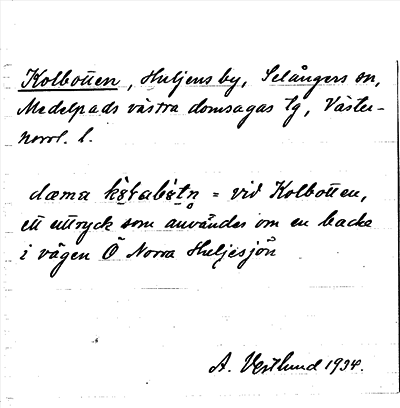 Kolbotten, Huljens by, Selångers sn,
Medelpads västra domsagas tg, Väster-
norrl. l.
dæma = vid Kolbotten,
ett uttryck som användes om en backe
i vägen Ö Norra Huljesjön
A. Vestlund 1934.